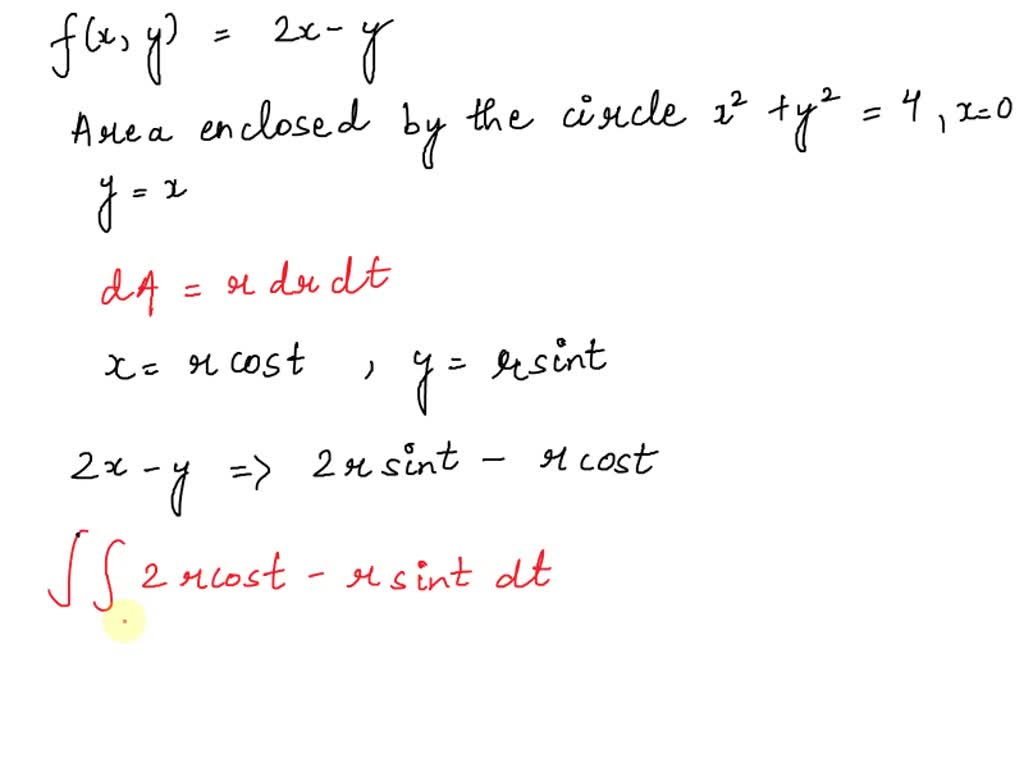 f(x, y) = 2x - y
Area enclosed by the circle x² + y² = 4, x=0
y = x
dA = r dr dt
x = r cost , y = r sint
2x - y => 2r sint - r cost
∫∫ 2 r cost - r sint dt